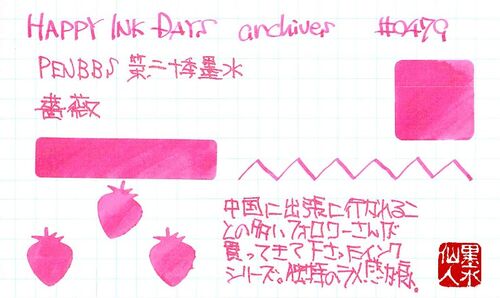 HAPPY INK DAYS archives #0479
PENBBS 第二十季墨水
薔薇
中国に出張に行かれるこ
との多いフォロワーさんが
買ってきて下さったインク
シリーズ。独特のラメ感が良。
墨水
仙人